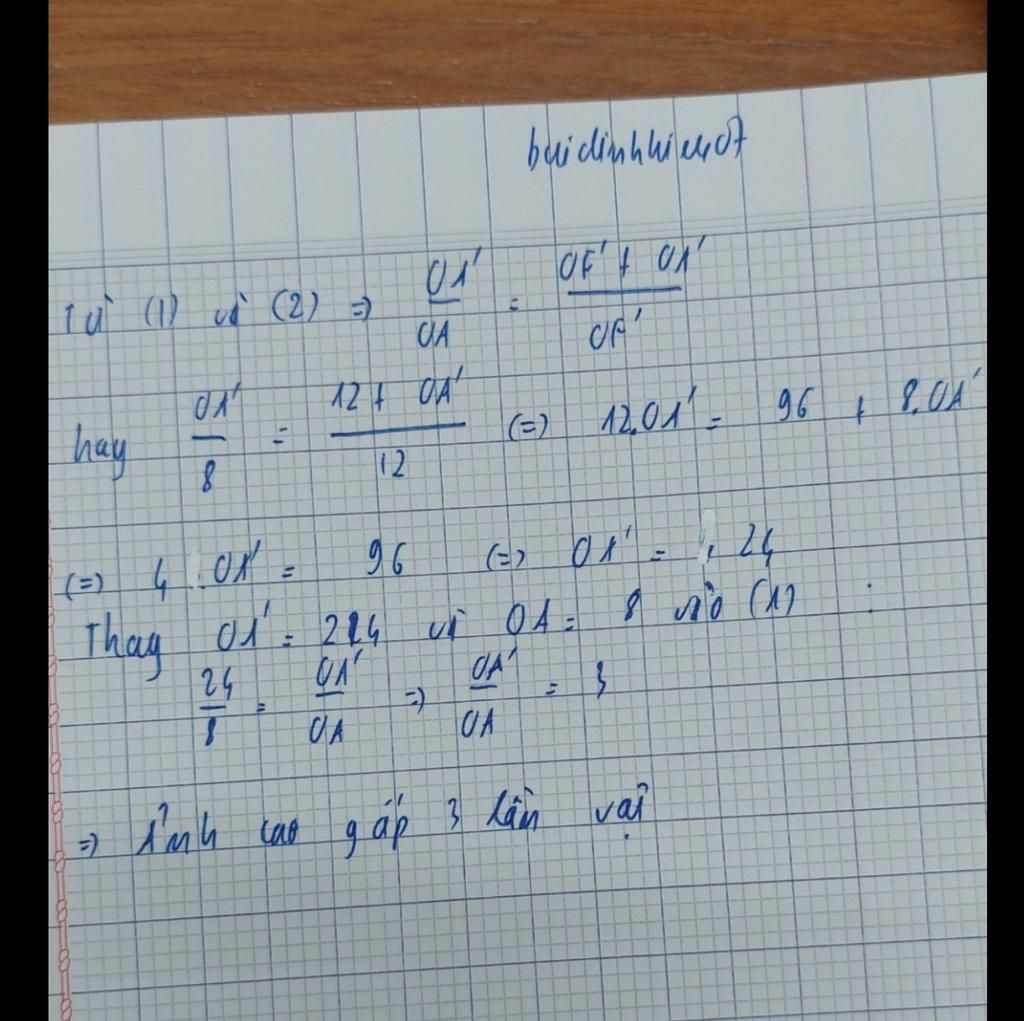 buidinhhieu07
Từ (1) và (2) => OA'/OA = OF' + OA'/OF'
hay OA'/8 = 12 + OA'/12 (=) 12.OA' = 96 + 8.OA'
(=) 4.OA' = 96 (=) OA' = 24
Thay OA' = 24 và OA = 8 vào (1) :
24/8 = OA'/OA => OA'/OA = 3
=> Ảnh cao gấp 3 lần vật